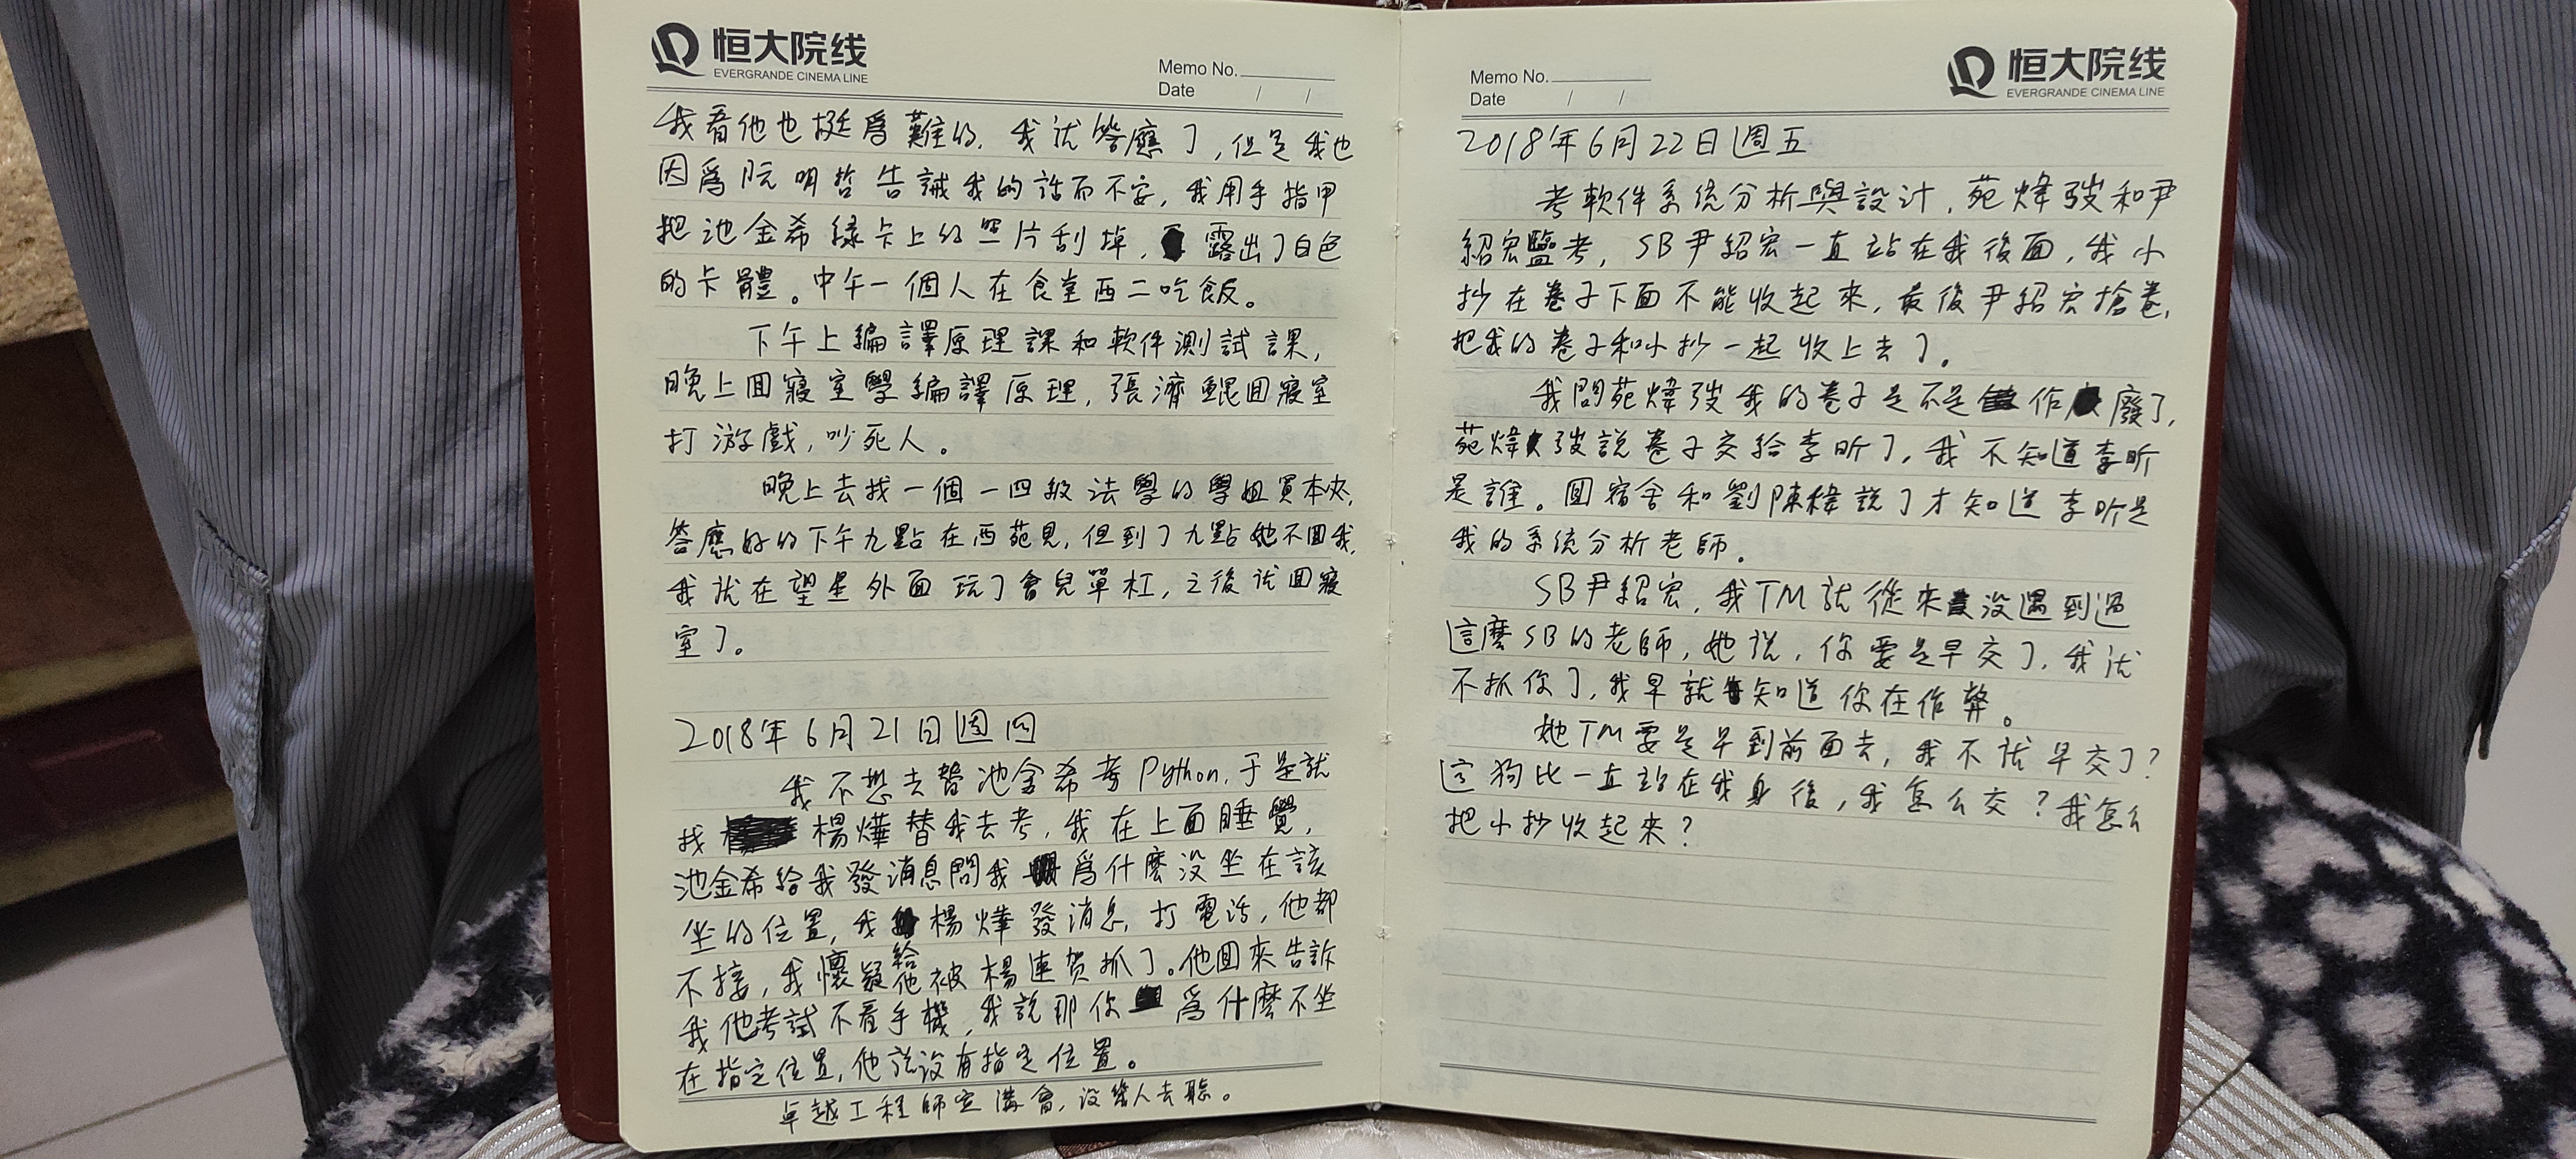 恒大院线
EVERGRANDE CINEMA LINE
Memo No.
Date / /
我看他也挺爲難的，我就答應了，但是我也
因爲阮明哲告誡我的話而不安，我用手指甲
把池金希綠卡上的照片刮掉，露出了白色
的卡體。中午一個人在食堂西二吃飯。
下午上編譯原理課和軟件測試課，
晚上回寢室學編譯原理，張濟鯤回寢室
打游戲，吵死人。
晚上去找一個一四級法學的學姐買本夾，
答應好的下午九點在西苑見，但到了九點她不回我，
我就在望星外面玩了會兒單杠，之後就回寢
室了。
2018年6月21日週四
我不想去替池金希考Python，于是就
找楊燁替我去考，我在上面睡覺，
池金希給我發消息問我爲什麽没坐在該
坐的位置，我給楊燁發消息，打電話，他都
不接，我懷疑他被楊連贺抓了。他回來告訴
我他考試不看手機，我説那你爲什麽不坐
在指定位置，他説没有指定位置。
卓越工程師宣講會，没幾人去聽。
Memo No.
Date / /
恒大院线
EVERGRANDE CINEMA LINE
2018年6月22日週五
考軟件系统分析與設計，苑煒弢和尹
紹宏監考，SB尹紹宏一直站在我後面，我小
抄在卷子下面不能收起來，最後尹紹宏搶卷，
把我的卷子和小抄一起收上去了。
我問苑煒弢我的卷子是不是作廢了，
苑煒弢説卷子交給李昕了，我不知道李昕
是誰。回宿舍和劉陳樟説了才知道李昕是
我的系统分析老師。
SB尹紹宏，我TM就從來没遇到過
這麽SB的老師，她説，你要是早交了，我就
不抓你了，我早就知道你在作弊。
她TM要是早到前面去，我不就早交了？
這狗比一直站在我身後，我怎么交？我怎么
把小抄收起來？